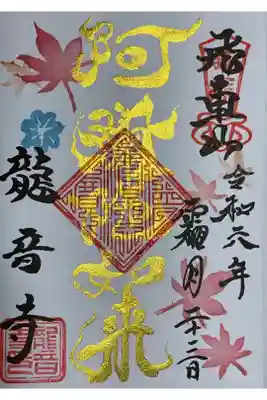 飛車山
令和六年
霜月二十二日
阿弥陀如来
龍音寺